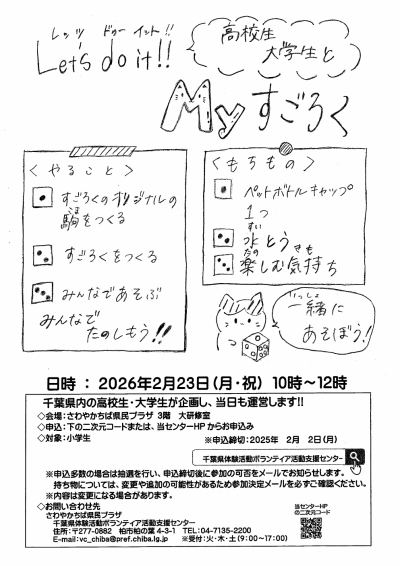 レッツ ドゥー イット!!
Let's do it!!
高校生
大学生と
Myすごろく
＜やること＞
すごろくのオリジナルの
駒をつくる
すごろくをつくる
みんなであそぶ
みんなで
たのしもう!!
＜もちもの＞
ペットボトルキャップ
1つ
すい
水とう
たの きも
楽しむ気持ち
いっしょ
一緒に
あそぼう!
日時 ： 2026年2月23日(月・祝) 10時～12時
千葉県内の高校生・大学生が企画し、当日も運営します!!
◇会場：さわやかちば県民プラザ 3階 大研修室
◇申込：下の二次元コードまたは、当センターHP からお申込み
◇対象：小学生 ※申込締切：2025年 2月 2日(月)
千葉県体験活動ボランティア活動支援センター
※申込多数の場合は抽選を行い、申込締切後に参加の可否をメールでお知らせします。
持ち物については、変更や追加の可能性があるため参加決定メールを必ずご確認ください。
※内容は変更になる場合があります。
◇お問い合わせ先
さわやかちば県民プラザ
千葉県体験活動ボランティア活動支援センター
住所：〒277-0882 柏市柏の葉 4-3-1 TEL：04-7135-2200
E-mail：vc_chiba@pref.chiba.lg.jp ※受付：火・木・土(9：00～17：00)
当センターHP
の二次元コード